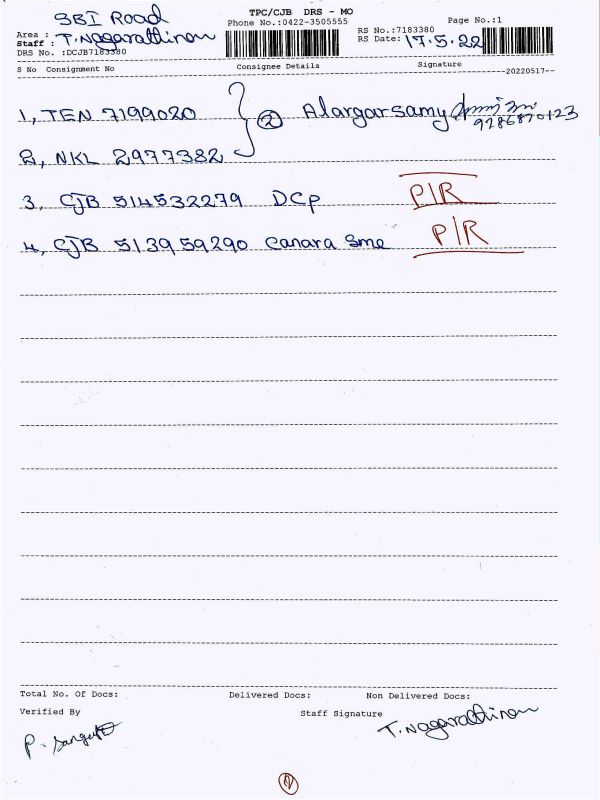 SBI Road
TPC/CJB DRS - MO
Page No.:1
Phone No.:0422-3505555
RS No.:7183380
Area :
Staff : T. Nagarathinam
RS Date: 17.5.22
DRS No. :DCJB7183380
S No Consignment No Consignee Details Signature
--20220517--
1, TEN 7199020 } ② Alargarsamy
9286870123
2, NKL 2977382
3, CJB 514532279 DCP P/R
4, CJB 513959290 Canara Sme P/R
Total No. Of Docs: Delivered Docs: Non Delivered Docs:
Verified By Staff Signature T. Nagarathinam
P.